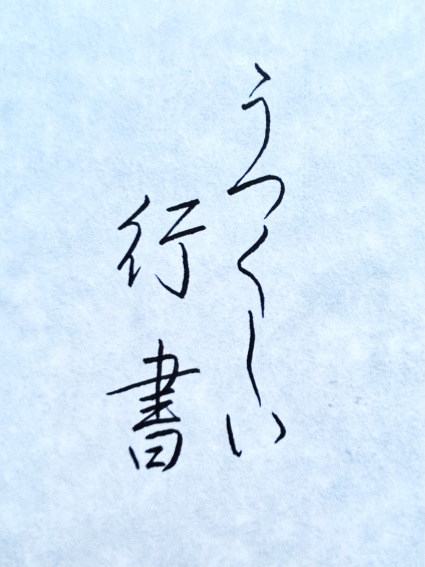 うつくしい
行書